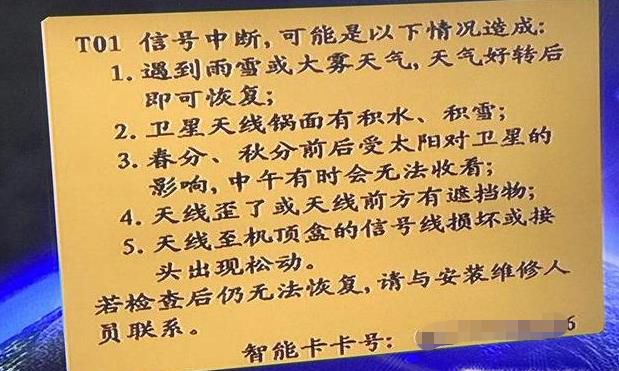 T01 信号中断,可能是以下情况造成:
1. 遇到雨雪或大雾天气,天气好转后
即可恢复;
2. 卫星天线锅面有积水、积雪;
3. 春分、秋分前后受太阳对卫星的
影响,中午有时会无法收看;
4. 天线歪了或天线前方有遮挡物;
5. 天线至机顶盒的信号线损坏或接
头出现松动。
若检查后仍无法恢复,请与安装维修人
员联系。
智能卡卡号: 6